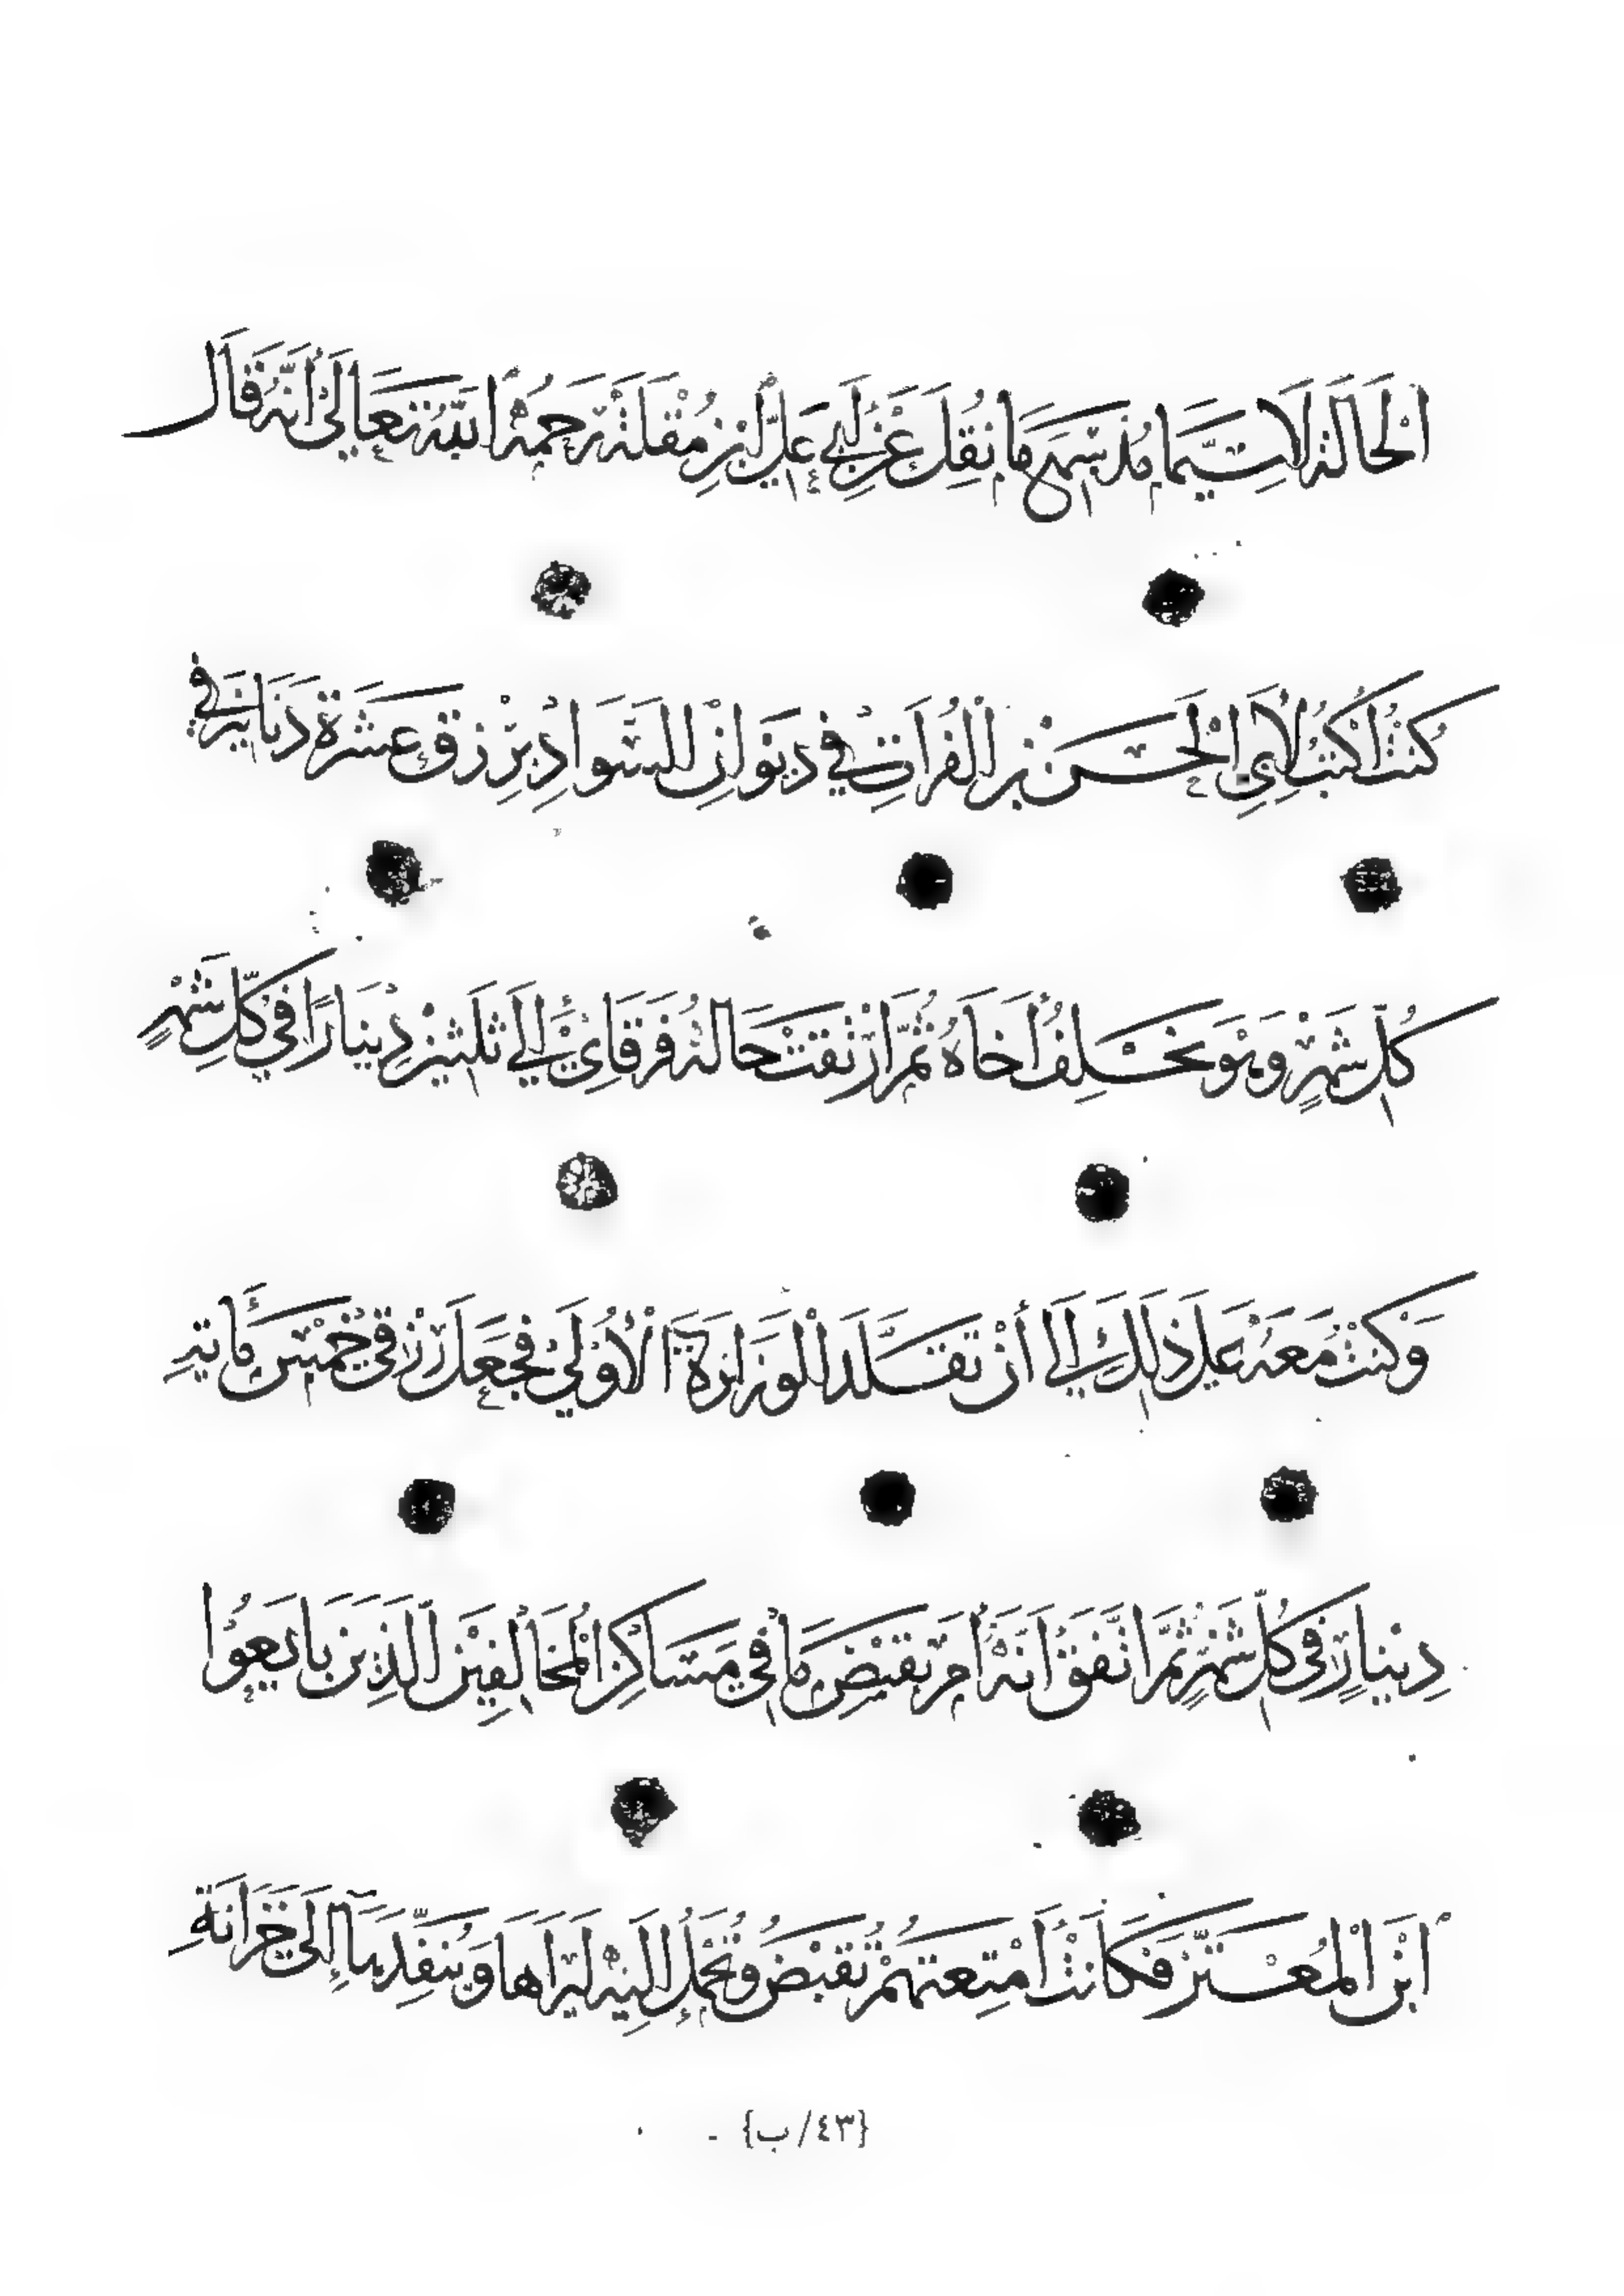 الْحَالَةُ لَا سِيَّمَا مُذْ سَمِعَ مَا نُقِلَ عَنْ أَبِي عَلِيِّ ابْنِ مُقْلَةَ رَحِمَهُ اللّٰهُ تَعَالَى أَنَّهُ قَالَ
كُنْتُ أَكْتُبُ لِأَبِي الْحَسَنِ بْنِ الْفُرَاتِ فِي دِيوَانِ السَّوَادِ بِرِزْقِ عَشَرَةِ دَنَانِيرَ فِي
كُلِّ شَهْرٍ وَهُوَ يَخْلِفُ أَخَاهُ ثُمَّ ارْتَفَعَتْ حَالُهُ فَرَقَّانِي إِلَى ثَلٰثِينَ دِينَارًا فِي كُلِّ شَهْرٍ
وَكُنْتُ مَعَهُ عَلَى ذَلِكَ إِلَى أَنْ تَقَلَّدَ الْوَزَارَةَ الْأُولَى فَجَعَلَ رِزْقِي خَمْسَ مِائَةِ
دِينَارٍ فِي كُلِّ شَهْرٍ ثُمَّ اتَّفَقَ أَنَّهُ أَمَرَ بِقَبْضِ مَا فِي مَسَاكِنِ الْمُخَالِفِينَ الَّذِينَ بَايَعُوا
ابْنَ الْمُعْتَزِّ فَكَانَتْ أَمْتِعَتُهُمْ تُقْبَضُ وَتُحْمَلُ إِلَيْهِ لِيَرَاهَا وَيُنَفِّذَهَا إِلَى خَزَانَةِ
{٤٣/ب}